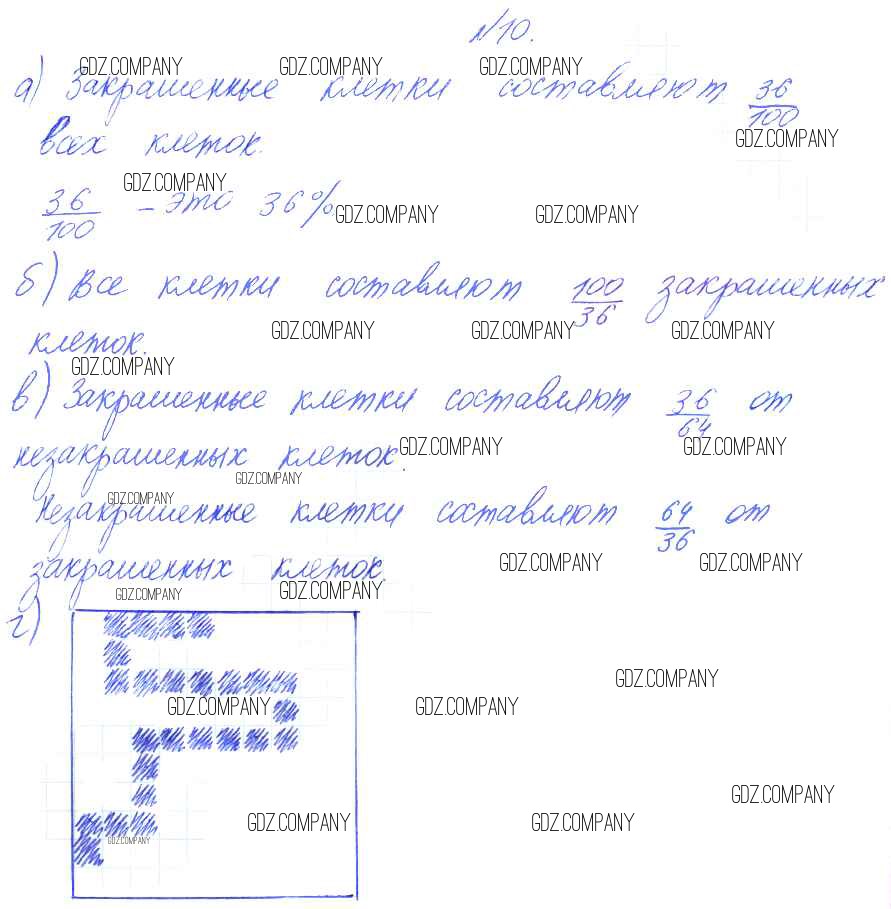 №10.
GDZ.COMPANY GDZ.COMPANY GDZ.COMPANY
а) Закрашенные клетки составляют 36/100
GDZ.COMPANY
всех клеток.
GDZ.COMPANY
36/100 – это 36%.
GDZ.COMPANY GDZ.COMPANY
б) Все клетки составляют 100/36 закрашенных
GDZ.COMPANY GDZ.COMPANY GDZ.COMPANY
клеток.
GDZ.COMPANY
в) Закрашенные клетки составляют 36/64 от
GDZ.COMPANY GDZ.COMPANY
незакрашенных клеток.
GDZ.COMPANY
GDZ.COMPANY
Незакрашенные клетки составляют 64/36 от
GDZ.COMPANY GDZ.COMPANY
закрашенных клеток.
GDZ.COMPANY GDZ.COMPANY
г)
GDZ.COMPANY
GDZ.COMPANY GDZ.COMPANY
GDZ.COMPANY
GDZ.COMPANY GDZ.COMPANY
GDZ.COMPANY